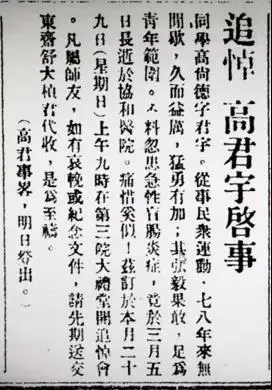 追悼 高君宇啓事
同學高尙德字君宇。從事民衆運動。七八年來無
閒歇,久而益厲,猛勇有加;其弘毅果敢,足爲
靑年範圍。不料忽患急性盲腸炎症,竟於三月五
日長逝於協和醫院。痛惜奚似!茲訂於本月二十
九日(星期日)上午九時在第三院大禮堂開追悼會
。凡屬師友,如有哀輓或紀念文件,請先期送交
東齋舒大楨君代收,是爲至禱。
(高君事畧,明日登出。)